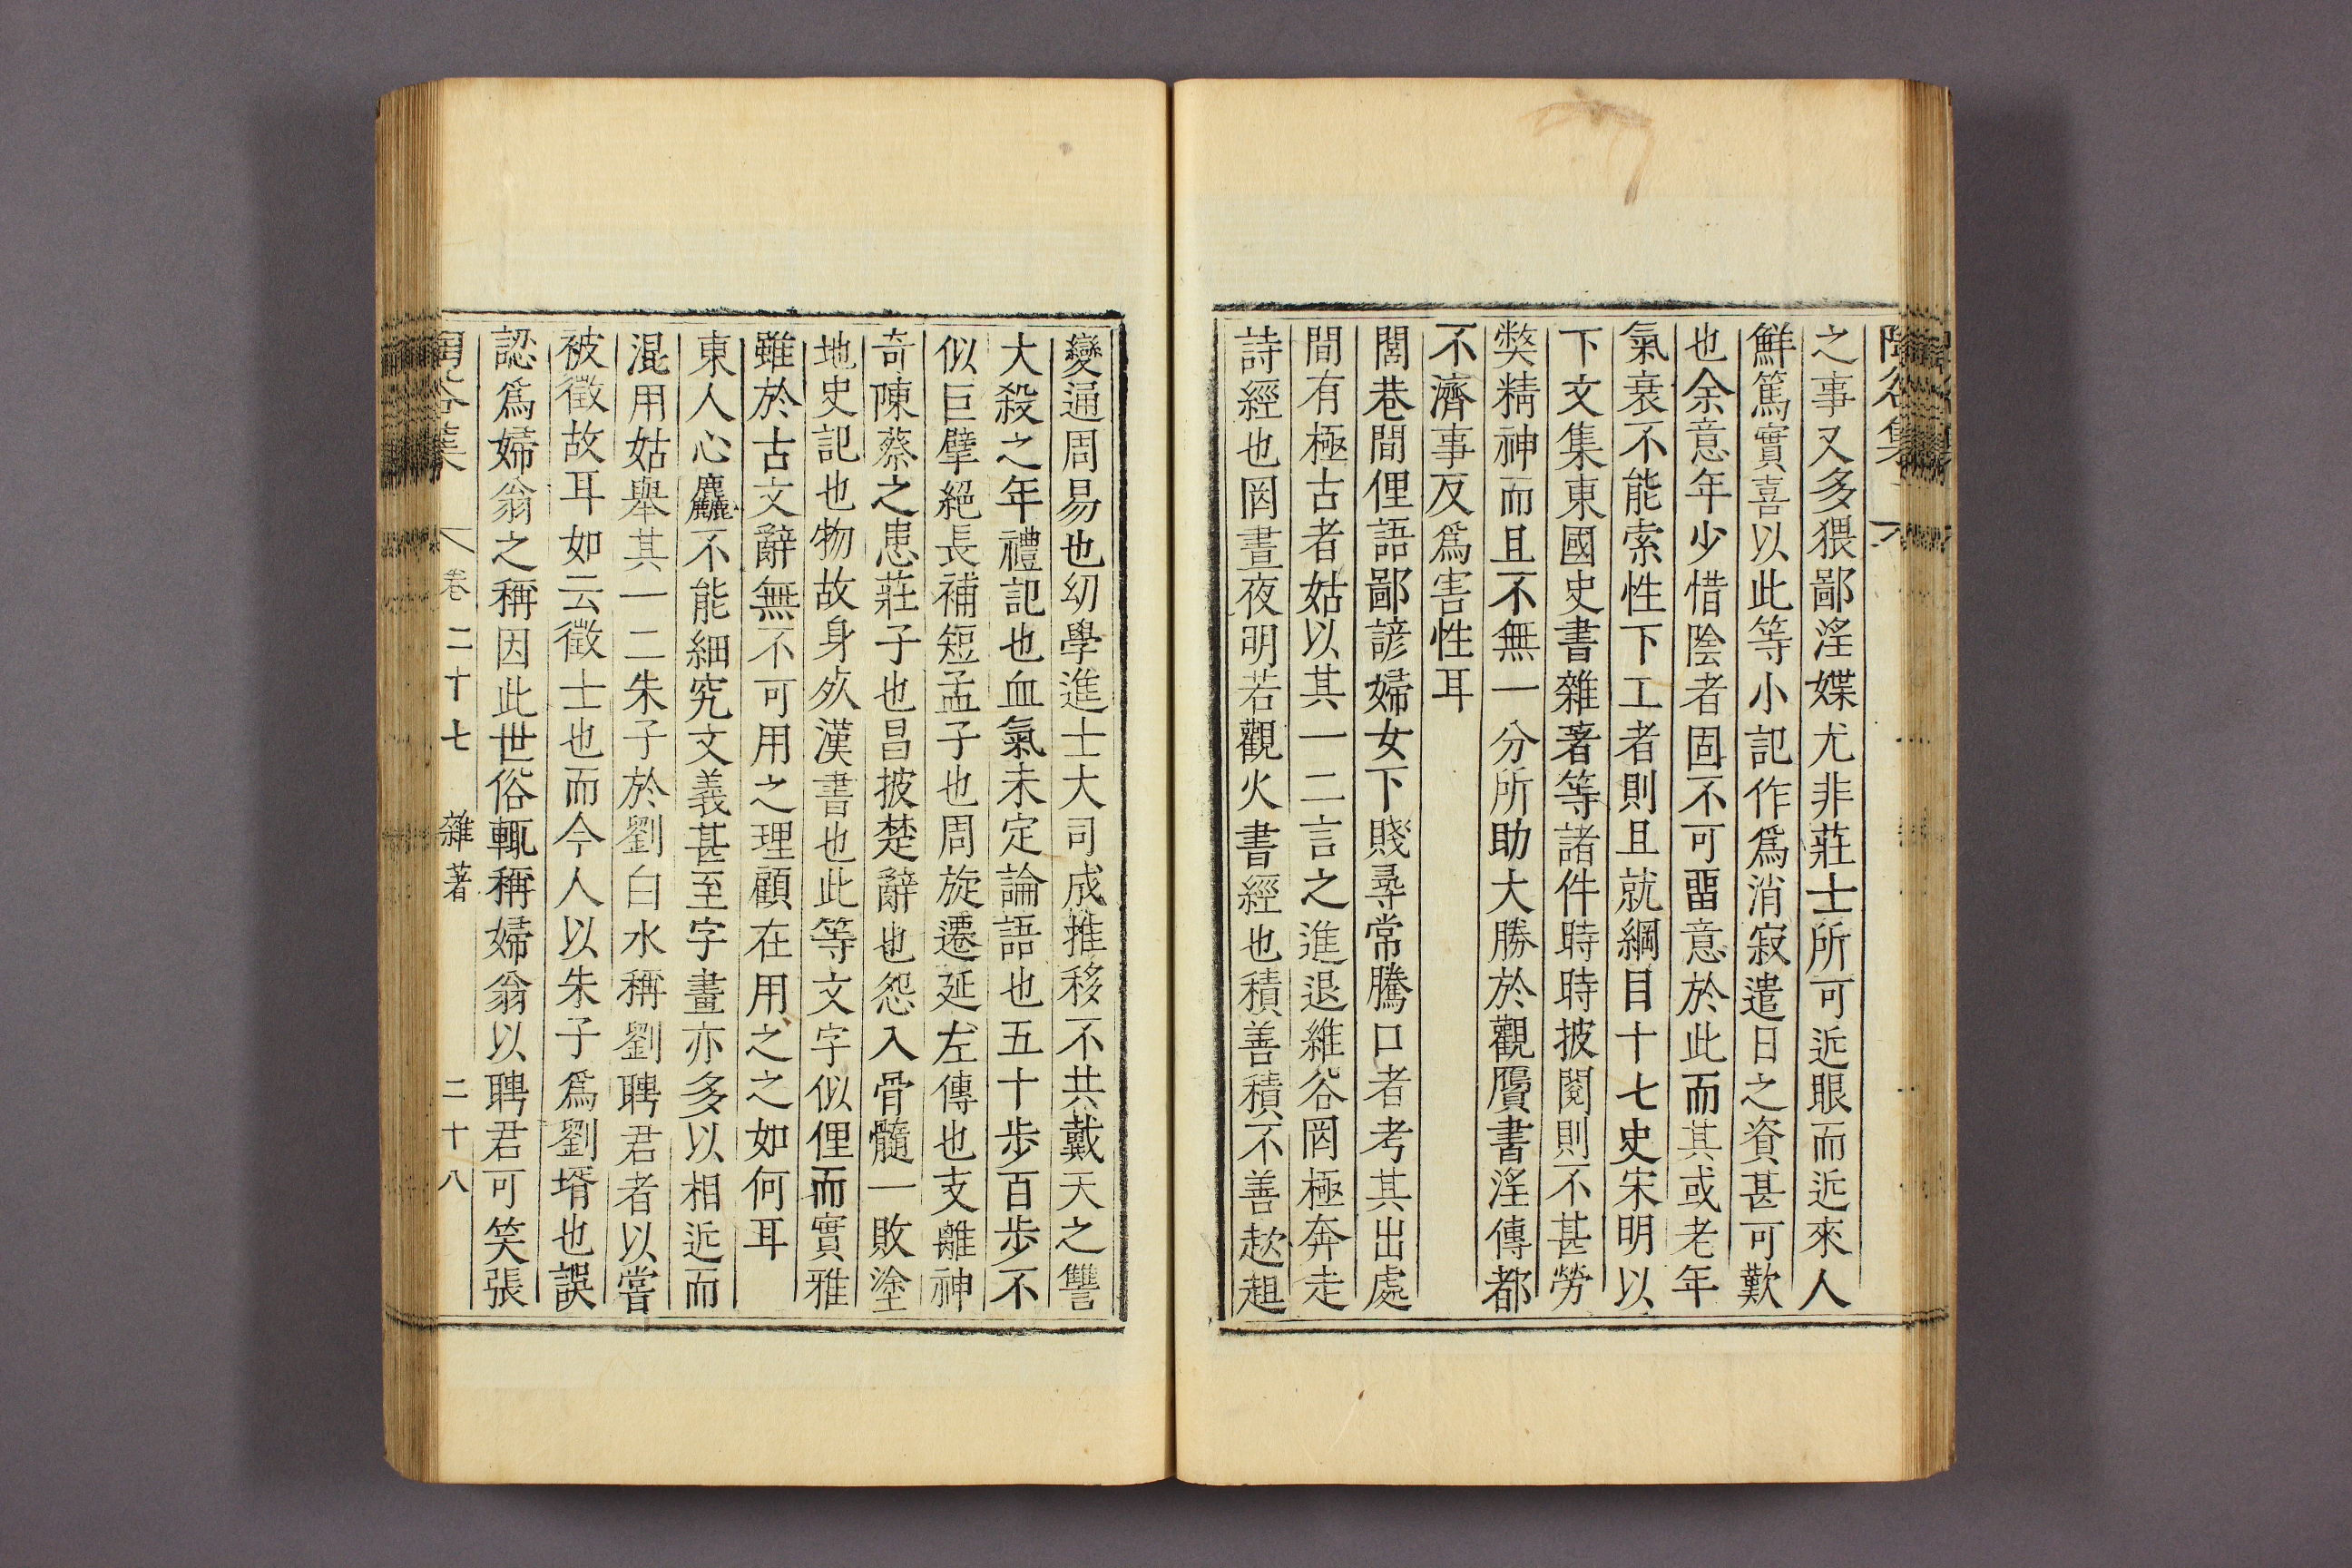 之事又多猥鄙淫媟尤非莊士所可近眼而近來人
鮮篤實喜以此等小記作爲消寂遣日之資甚可歎
也余意年少惜陰者固不可留意於此而其或老年
氣衰不能索性下工者則且就綱目十七史宋明以
下文集東國史書雜著等諸件時時披閱則不甚勞
獘精神而且不無一分所助大勝於觀贋書淫傳都
不濟事反爲害性耳
閭巷間俚語鄙諺婦女下賤尋常騰口者考其出處
間有極古者姑以其一二言之進退維谷罔極奔走
詩經也罔晝夜明若觀火書經也積善積不善趑趄
變通周易也幼學進士大司成推移不共戴天之讐
大殺之年禮記也血氣未定論語也五十步百步不
似巨擘絕長補短孟子也周旋遷延左傳也支離神
奇陳蔡之患莊子也昌披楚辭也怨入骨髓一敗塗
地史記也物故身歿漢書也此等文字似俚而實雅
雖於古文辭無不可用之理顧在用之之如何耳
東人心麤不能細究文義甚至字畫亦多以相近而
混用姑舉其一二朱子於劉白水稱劉聘君者以嘗
被徵故耳如云徵士也而今人以朱子爲劉壻也誤
認爲婦翁之稱因此世俗輒稱婦翁以聘君可笑張
卷二十七 雜著 二十八